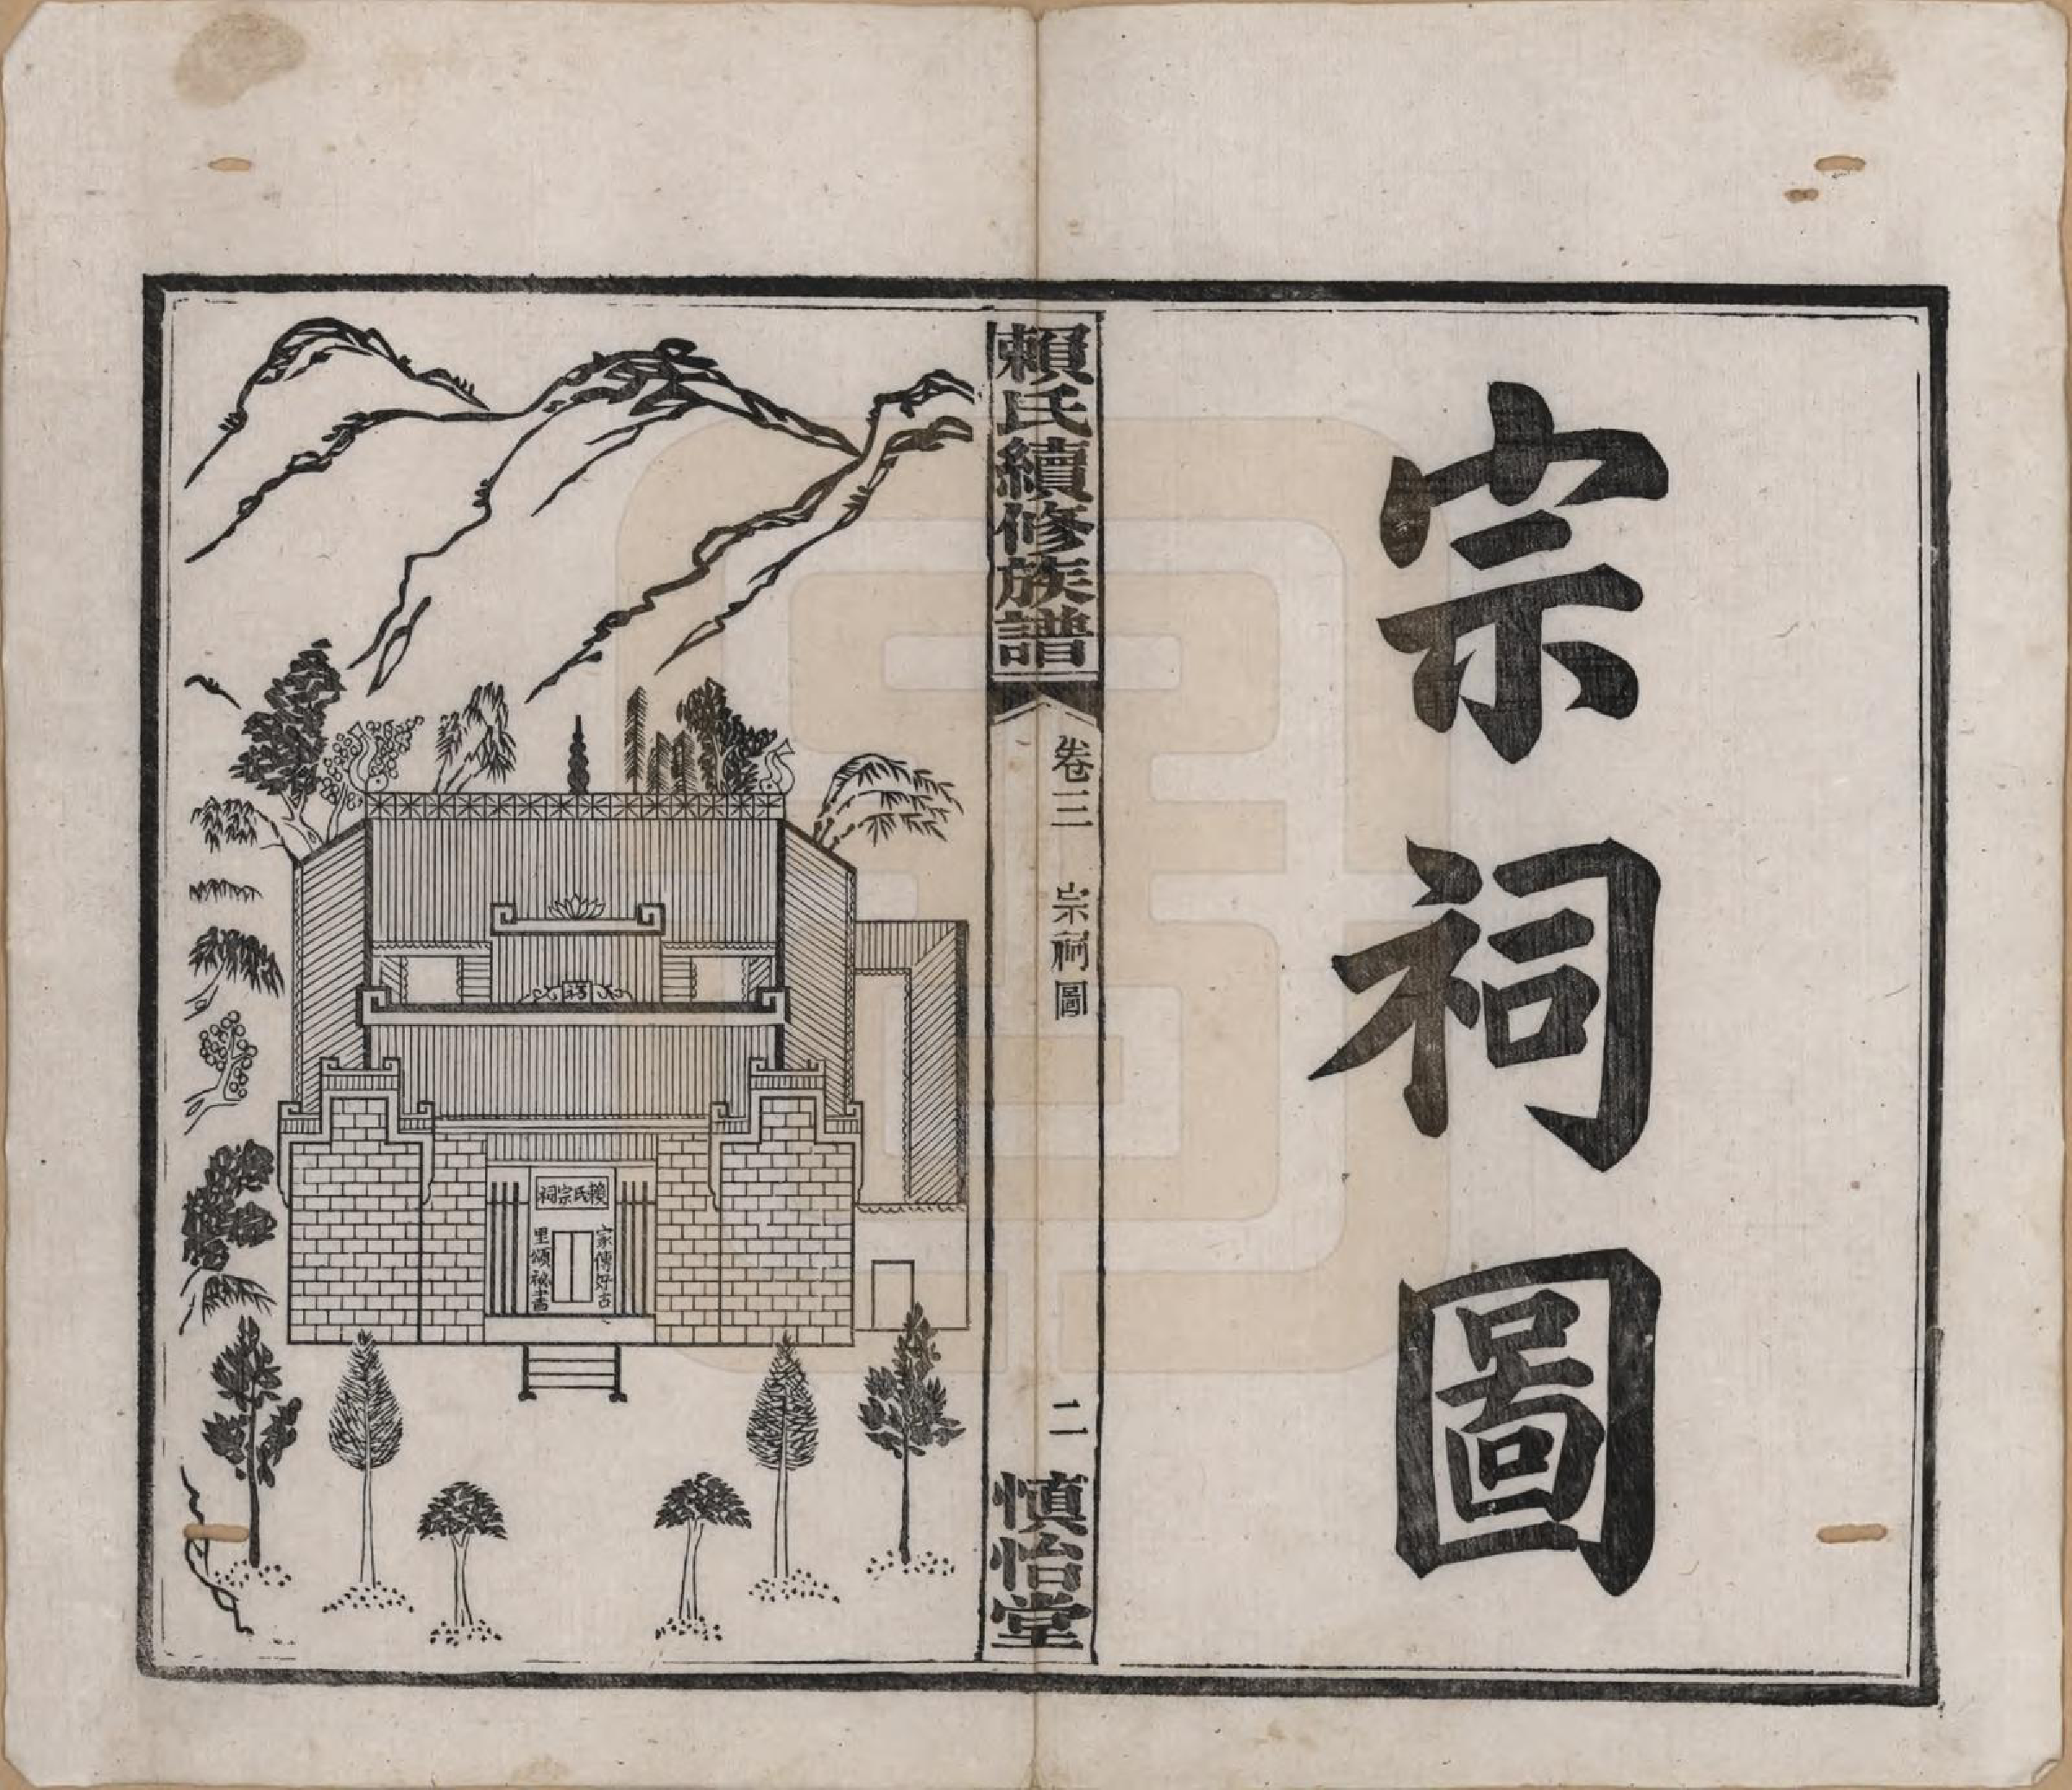 宗祠圖
賴氏續修族譜
卷三 宗祠圖
二
慎怡堂
祠
賴氏宗祠
家傳好古
里頌祕書